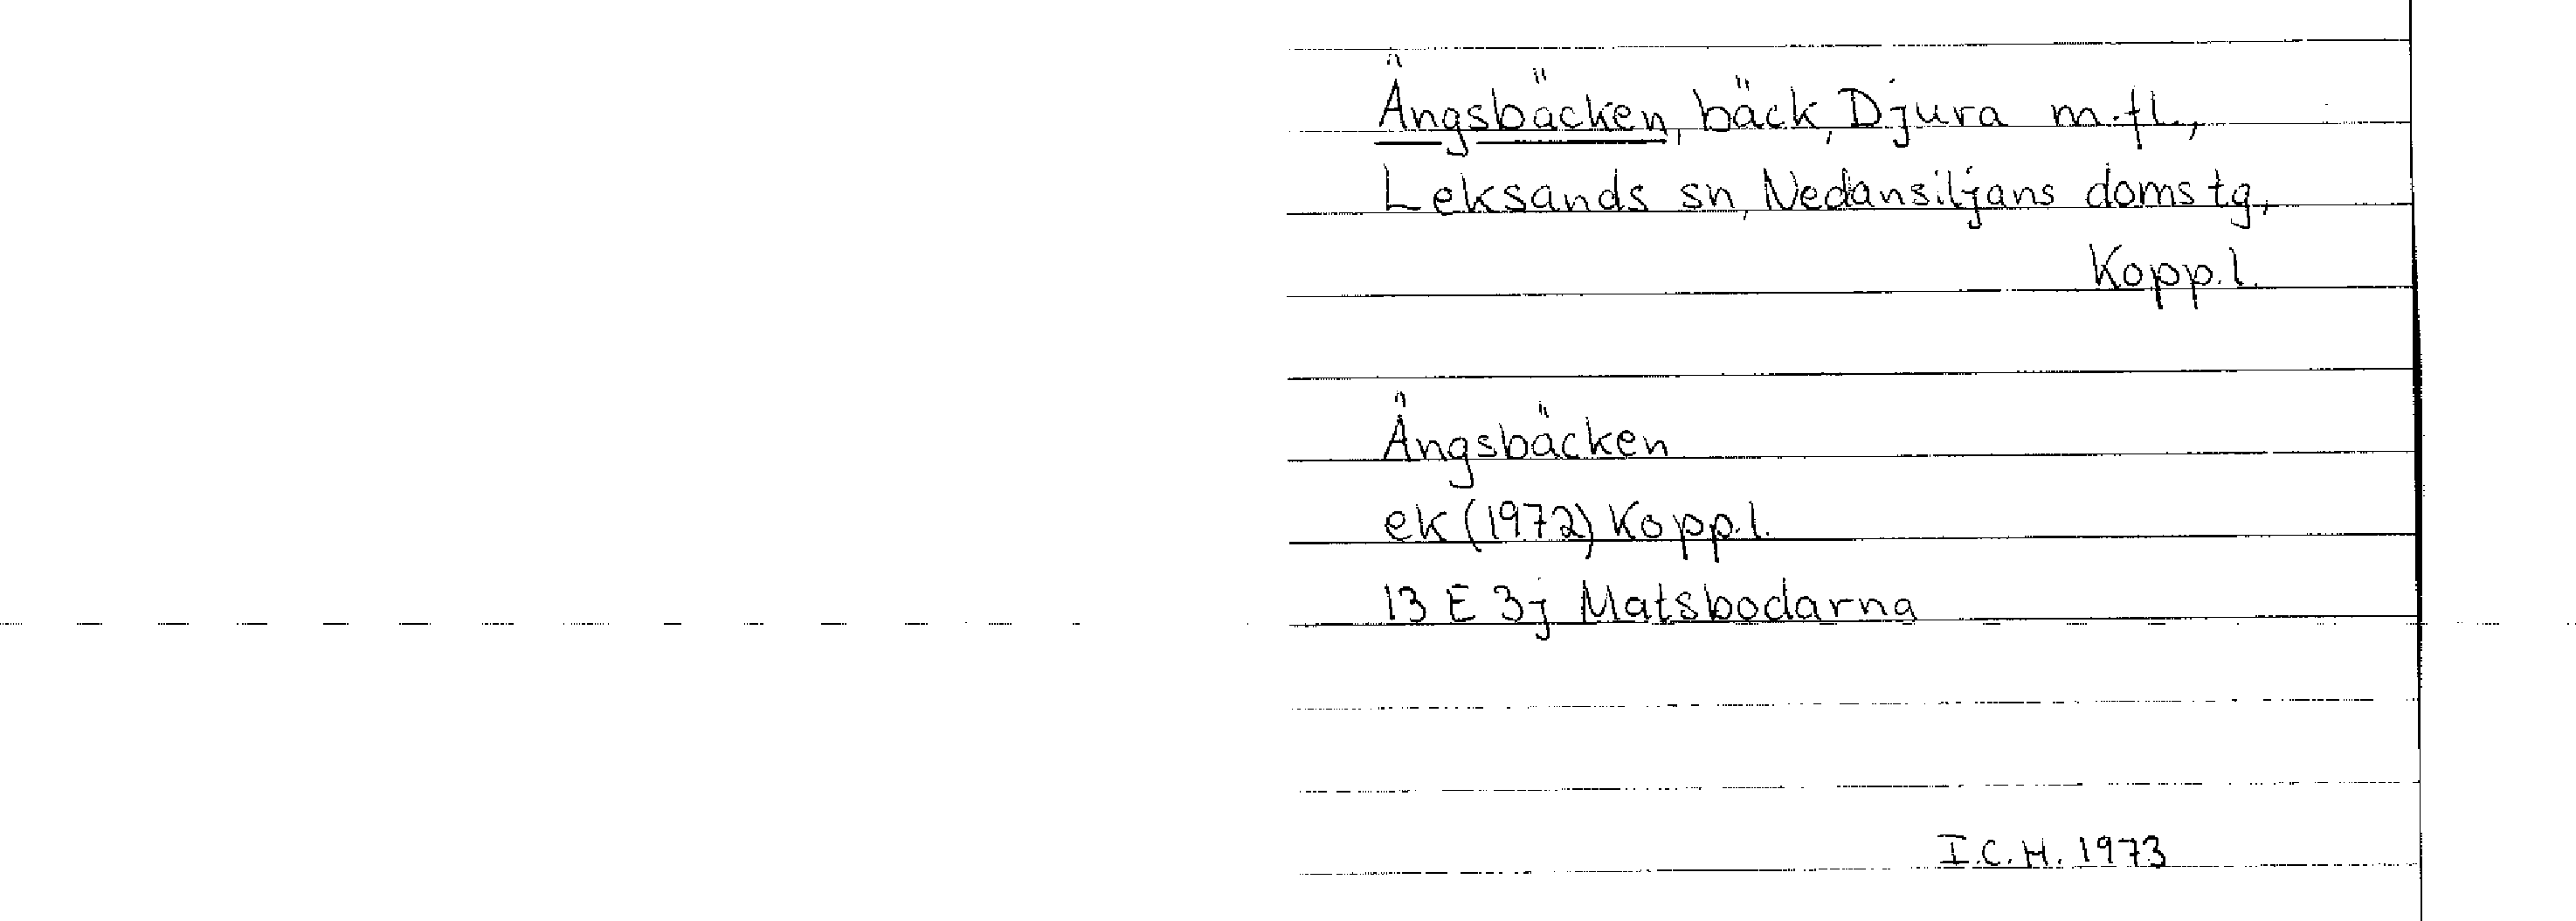 Ängsbäcken, bäck, Djura m.fl.,
Leksands sn, Nedansiljans domstg,
Kopp.l.
Ängsbäcken
ek (1972) Kopp.l.
13 E 3j Matsbodarna
I.C.H. 1973